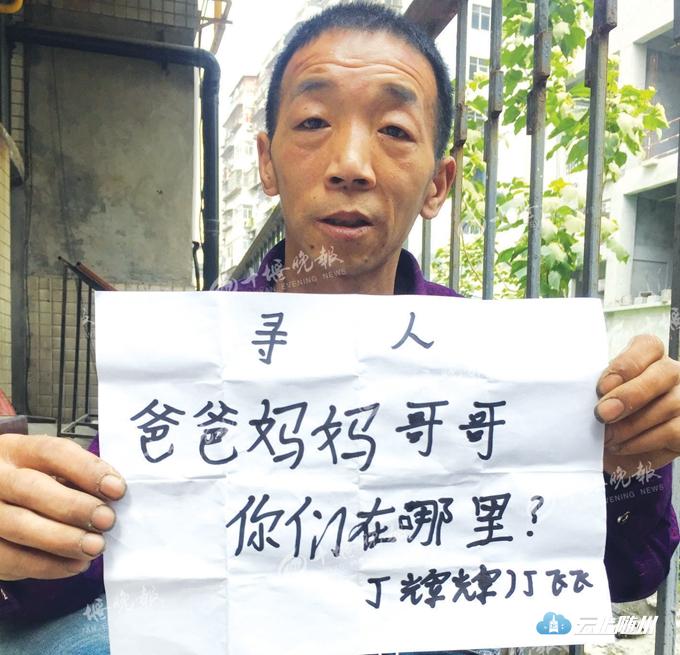 寻人
爸爸妈妈哥哥
你们在哪里?
丁辉辉 丁飞飞
十堰晚报
EVENING NEWS
晚报
EVENING NEWS
云上随州